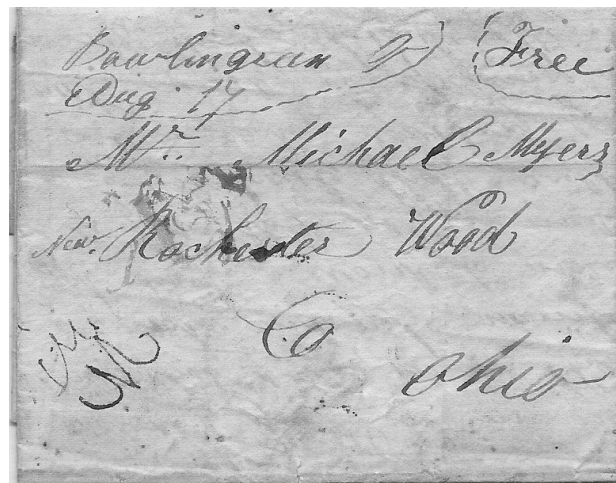 Bowlingreen O Free
Aug 17
Mr. Michael Myers
New. Rochester Wood
Co
Ohio